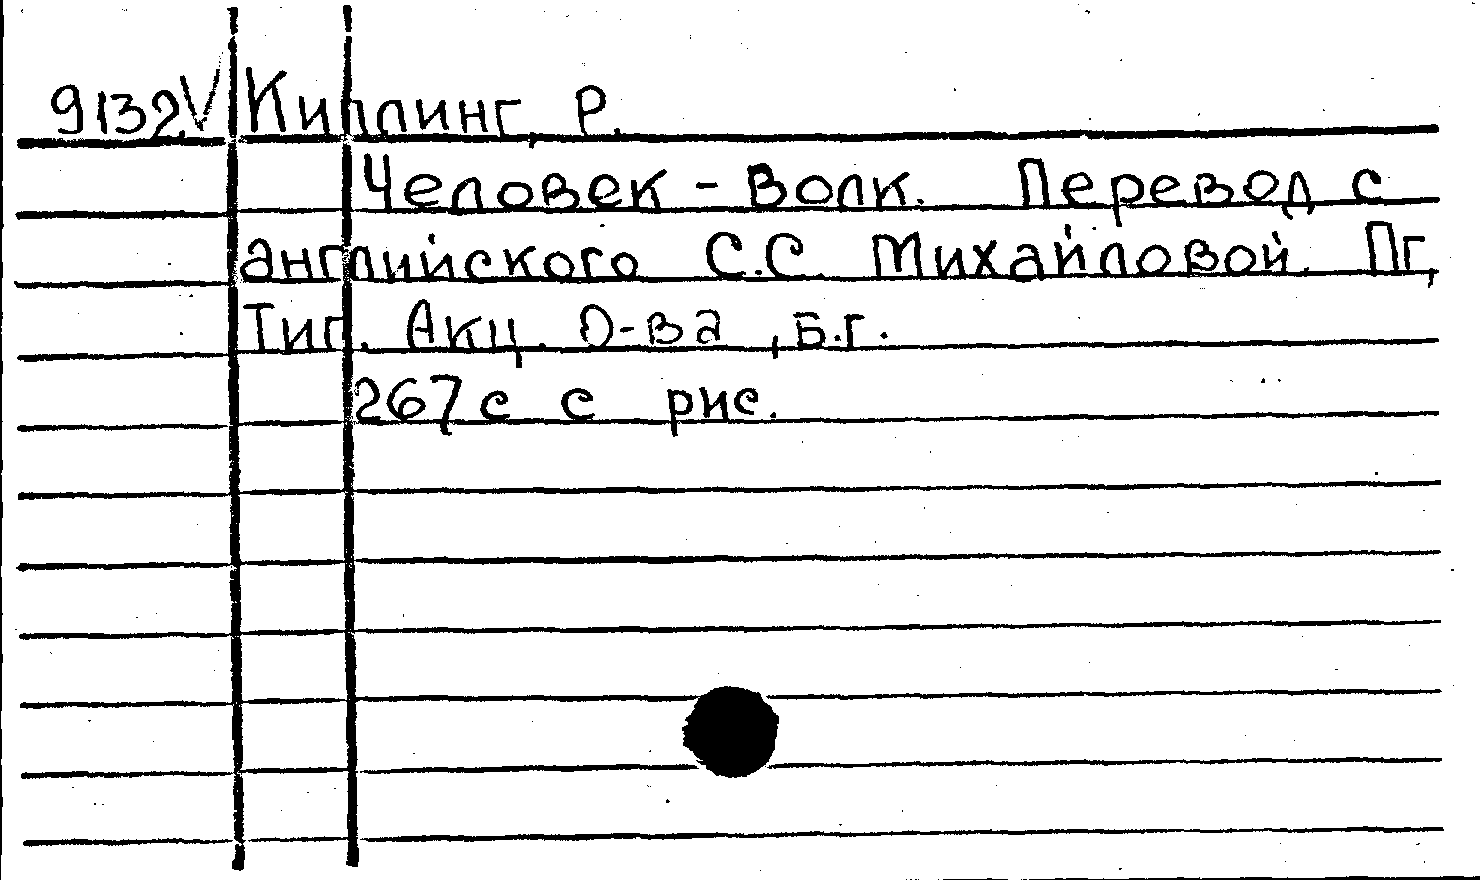 9132V Киплинг, Р.
Человек - Волк. Перевод с
английского С.С. Михайловой. Пг,
Тип. Акц. О-ва, б.г.
267 с с рис.